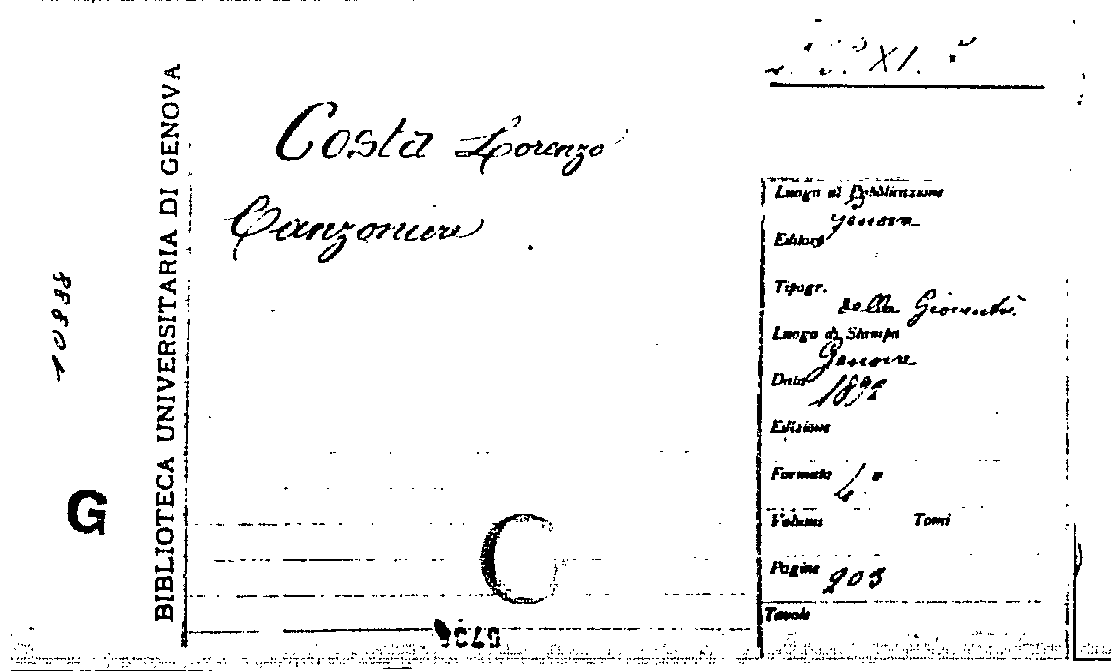 XI.
Costa Lorenzo
Canzoniere
BIBLIOTECA UNIVERSITARIA DI GENOVA
10888
G
Luogo di Pubblicazione
Genova
Editore
Tipogr.
della Gioventù
Luogo di Stampa
Genova
Data
Edizione
Formato
Volumi Tomi
Pagine 203
Tavole